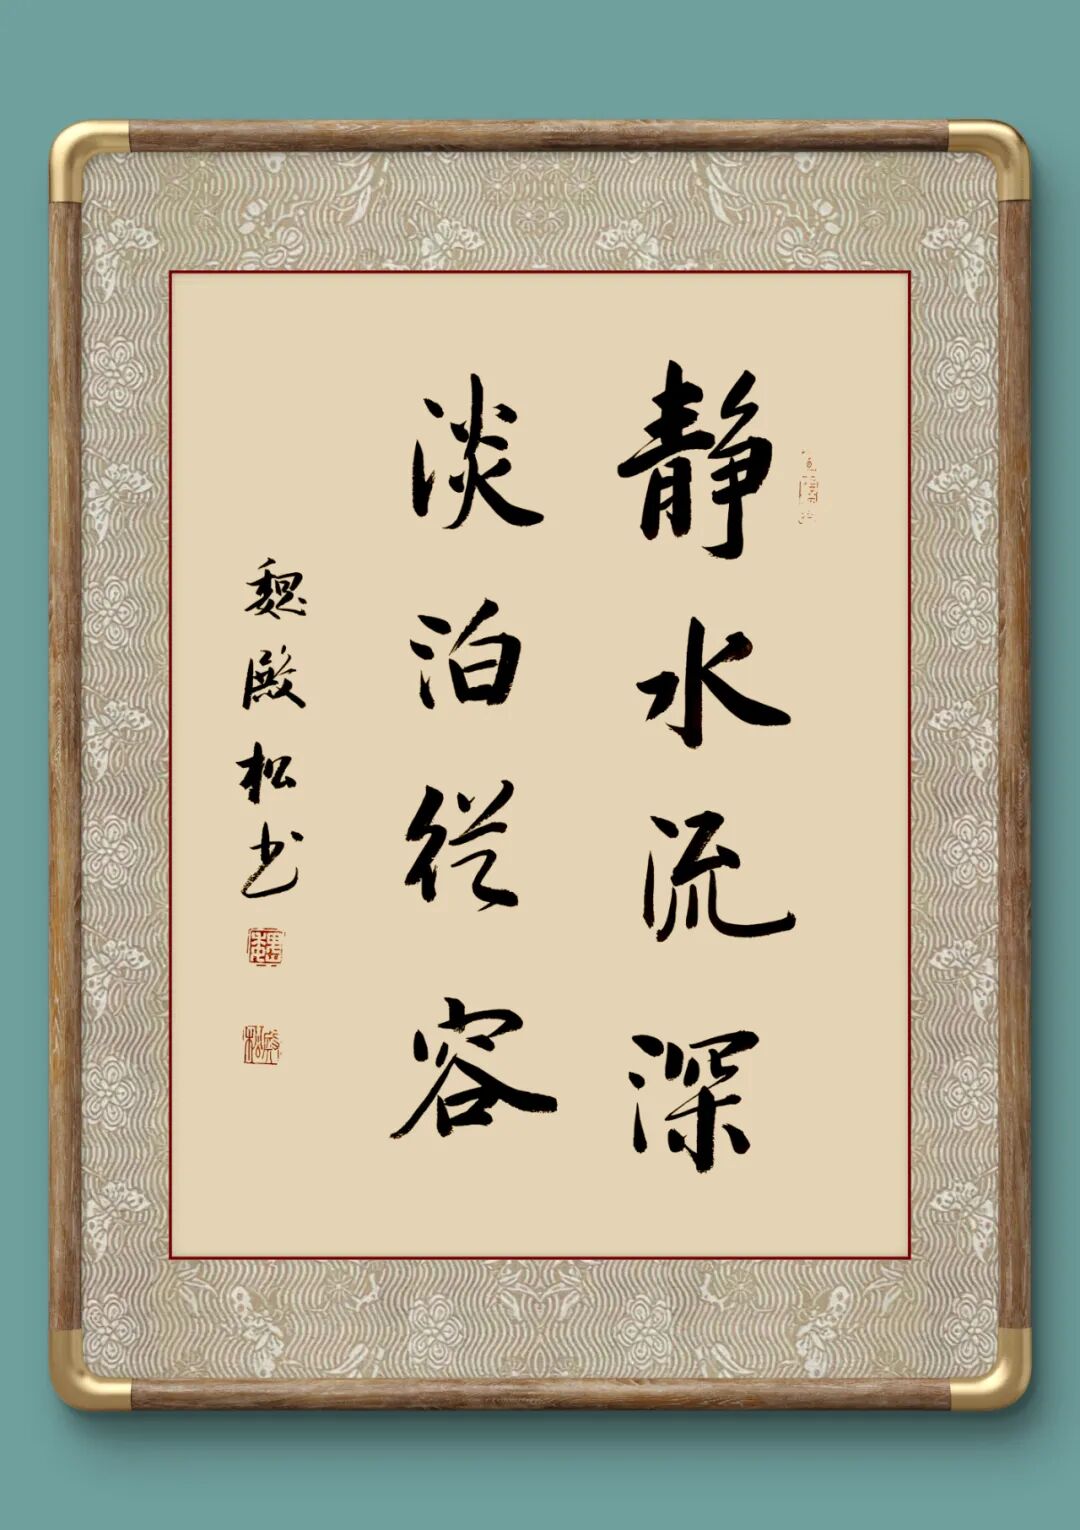 静水流深
淡泊從容
魏殿松书